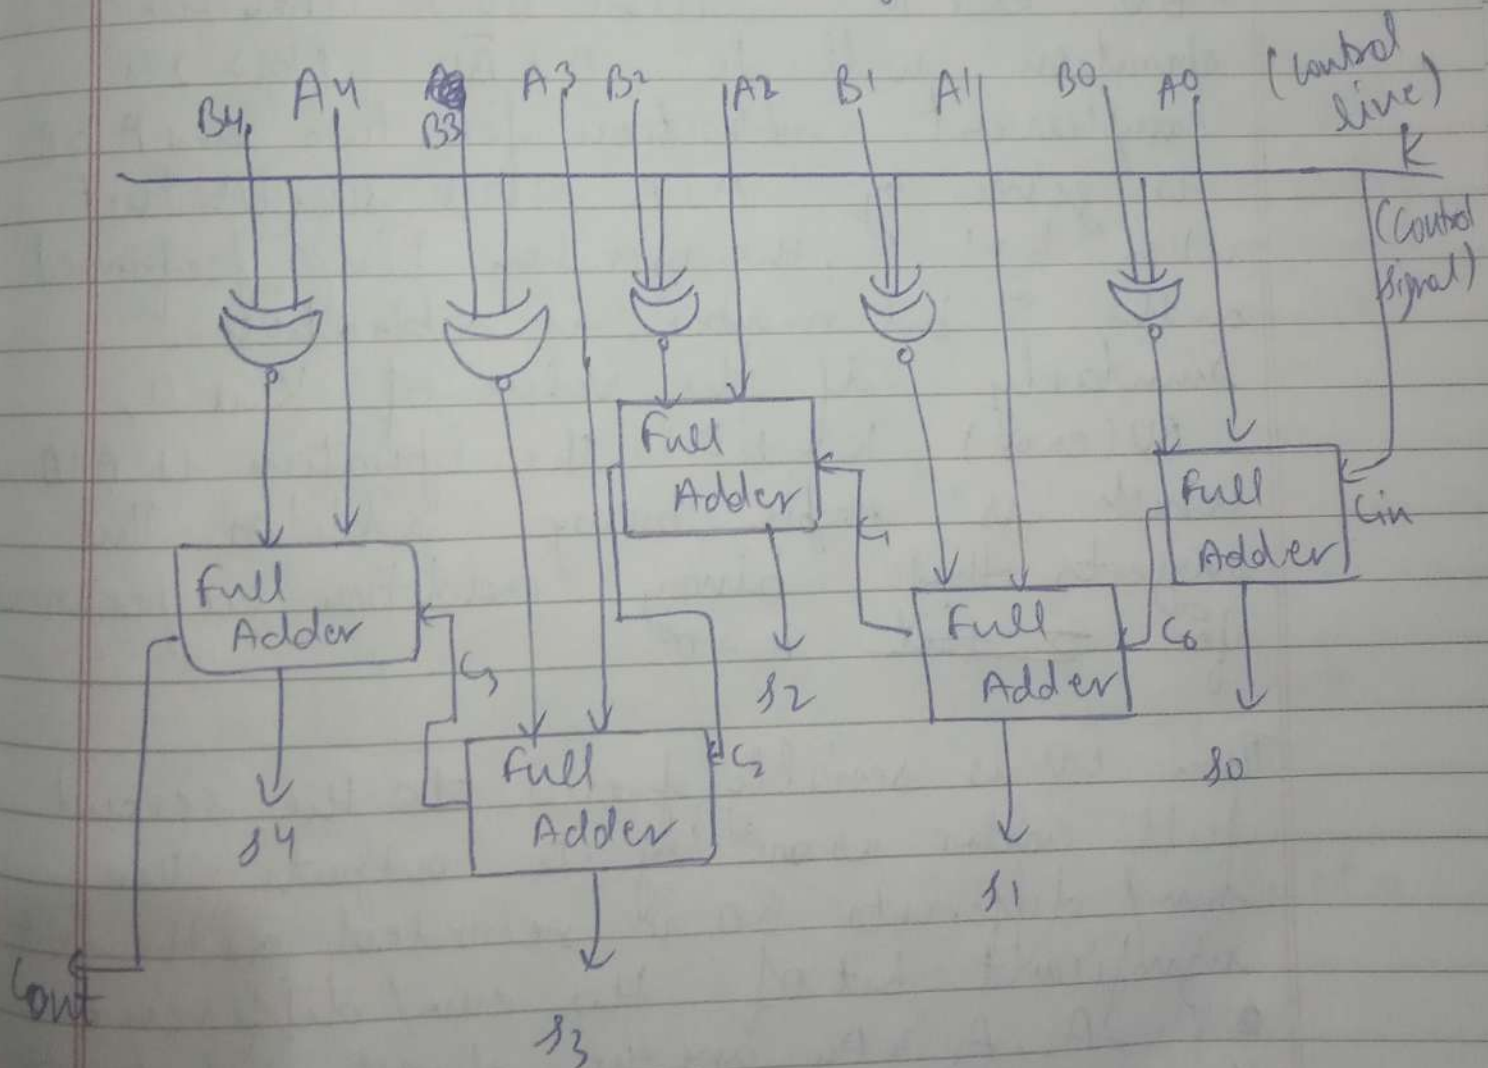 B4 A4 B3 A3 B2 A2 B1 A1 B0 A0 (Control
line)
K
(Control
signal)
Full
Adder
Full
Adder
Cin
Full
Adder
C1
Full
Adder
C0
C3
S2
Full
Adder
C2
S0
S4
S1
Cout
S3